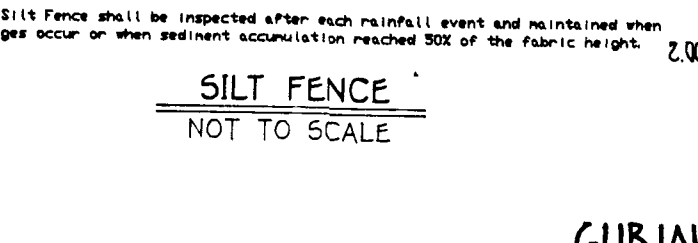 Silt Fence shall be inspected after each rainfall event and maintained when
ges occur or when sediment accumulation reached 50% of the fabric height.
SILT FENCE
NOT TO SCALE